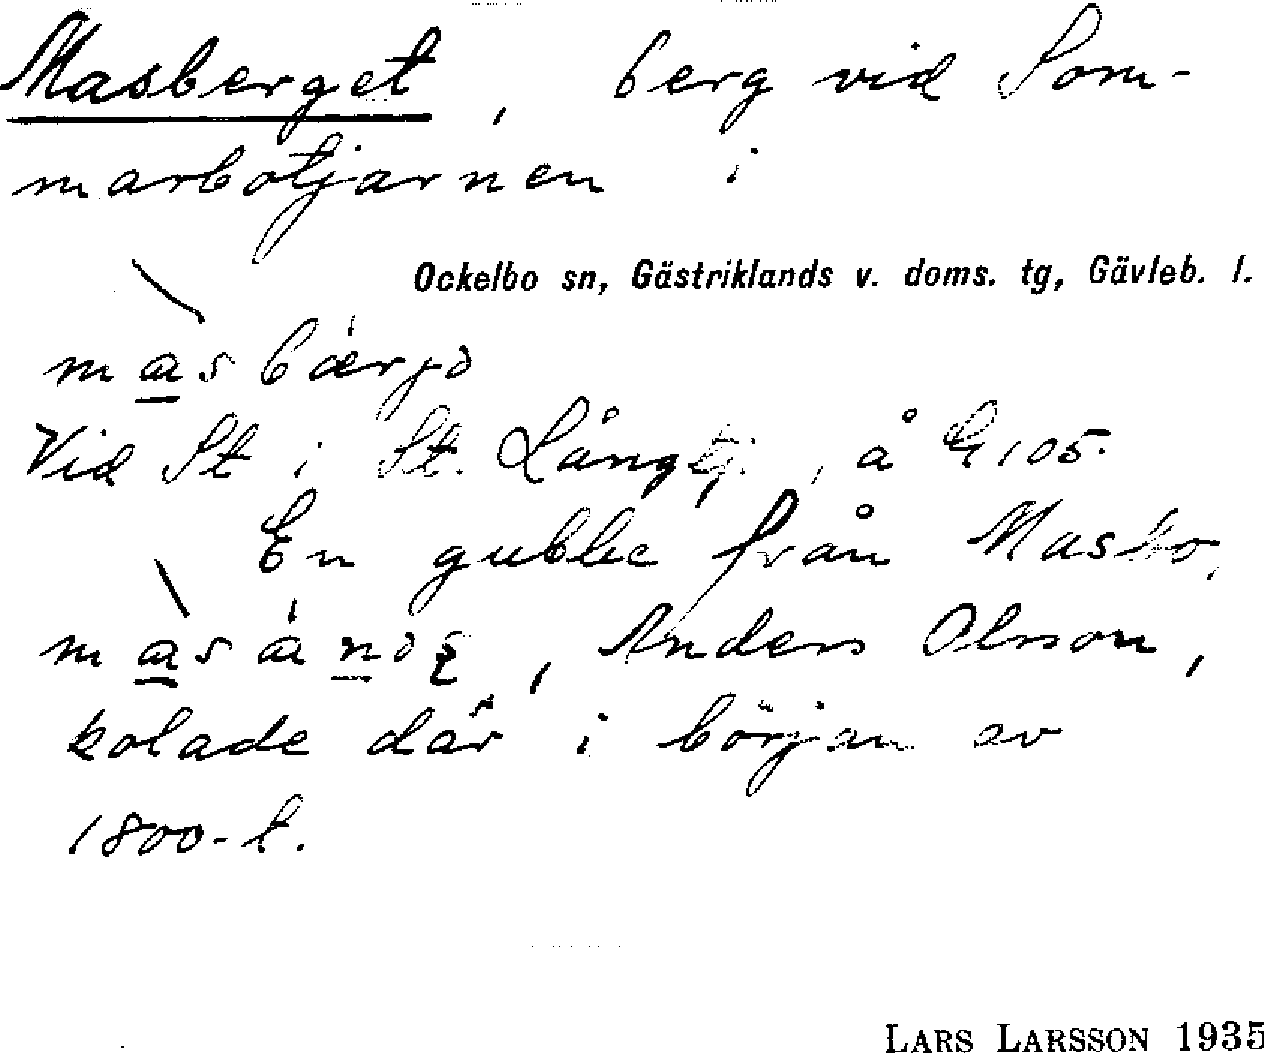 Masberget, berg vid Som-
marbotjärnen i
Ockelbo sn, Gästriklands v. doms. tg, Gävleb. l.
màsbærjə
Vid St i St. Långtj., å G 105.
En gubbe från Masbo,
màsánəş, Anders Olsson,
kolade där i början av
1800-t.
LARS LARSSON 1935